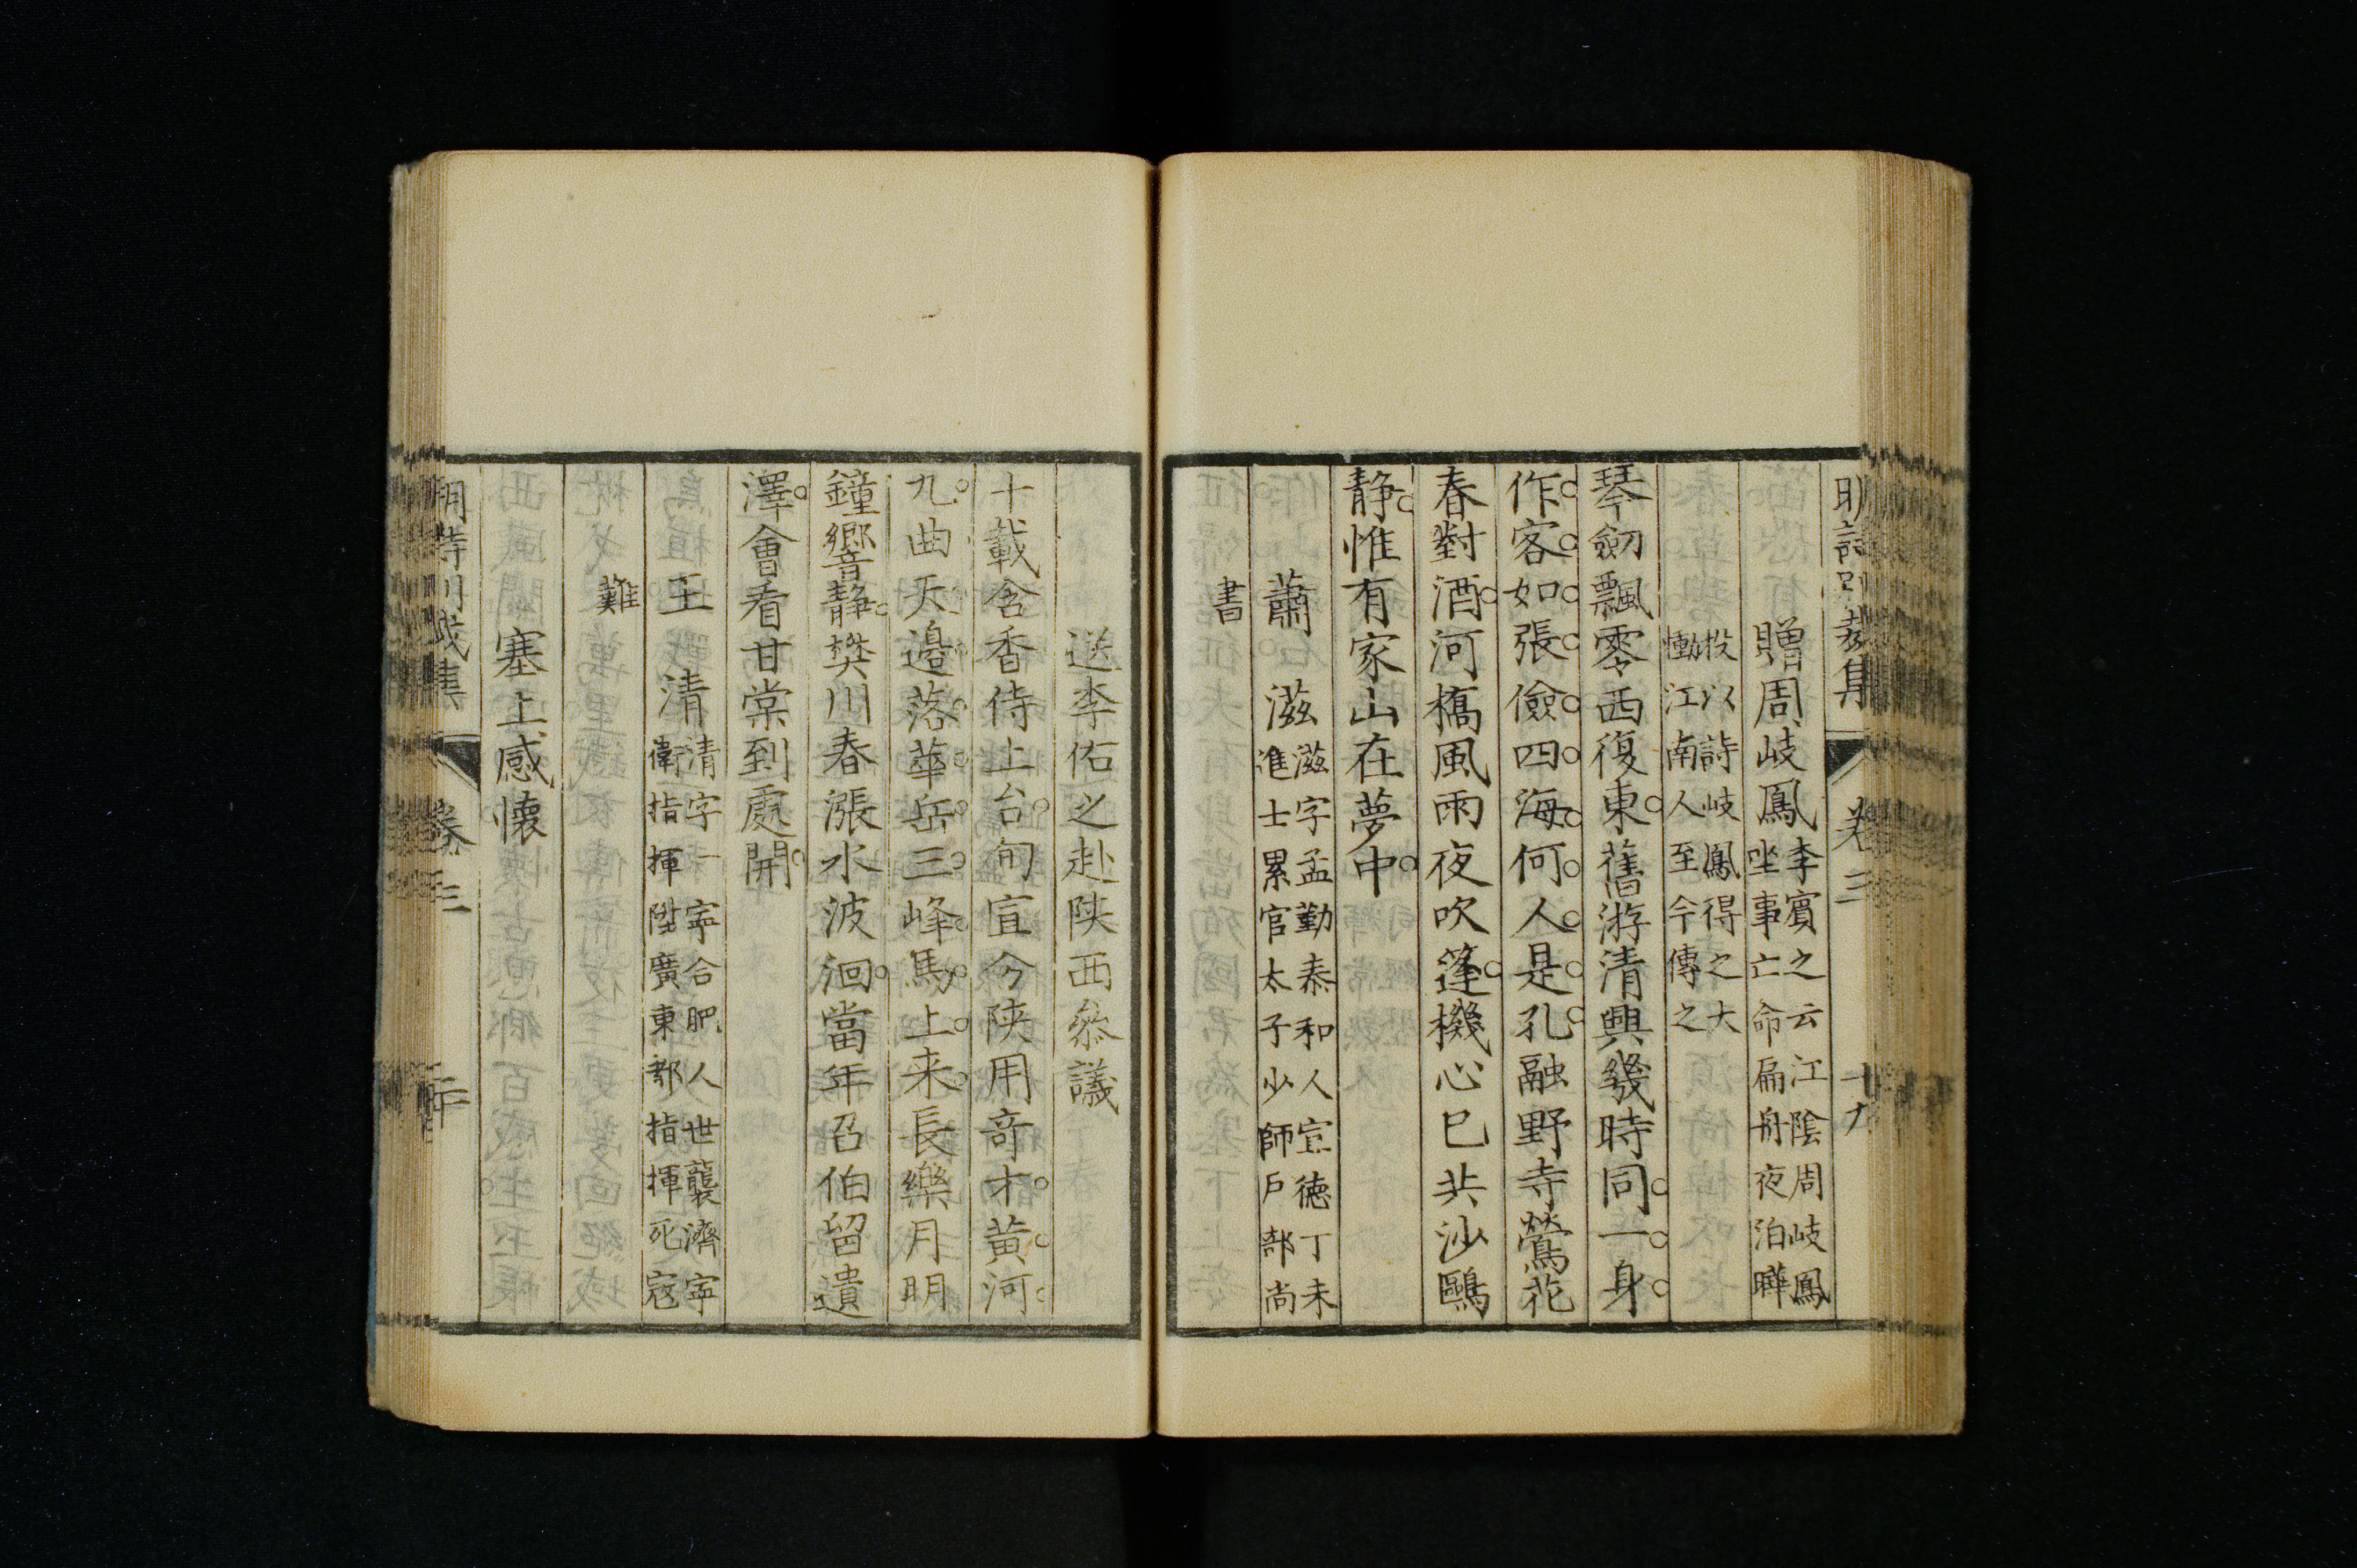 明詩別裁集 卷三 十九
贈周岐鳳李賓之云江陰周岐鳳
坐事亡命扁舟夜泊曄
投以詩岐鳳得之大
慟江南人至今傳之
琴劒飄零西復東舊游清興幾時同一身
作客如張儉四海何人是孔融野寺鶯花
春對酒河橋風雨夜吹篷機心已共沙鷗
静惟有家山在夢中
蕭滋滋字孟勤泰和人宣德丁未
進士累官太子少師戶部尚
書
送李佑之赴陝西叅議
十載含香侍上台旬宣今陕用竒才黄河
九曲天邉落華岳三峰馬上来長樂月明
鐘響静樊川春漲水波洄當年召伯留遺
澤會看甘棠到處開
王清清字一寧合肥人世襲濟寧
衛指揮陞廣東都指揮死寇
難
塞上感懷
明詩別裁集 卷三 二十